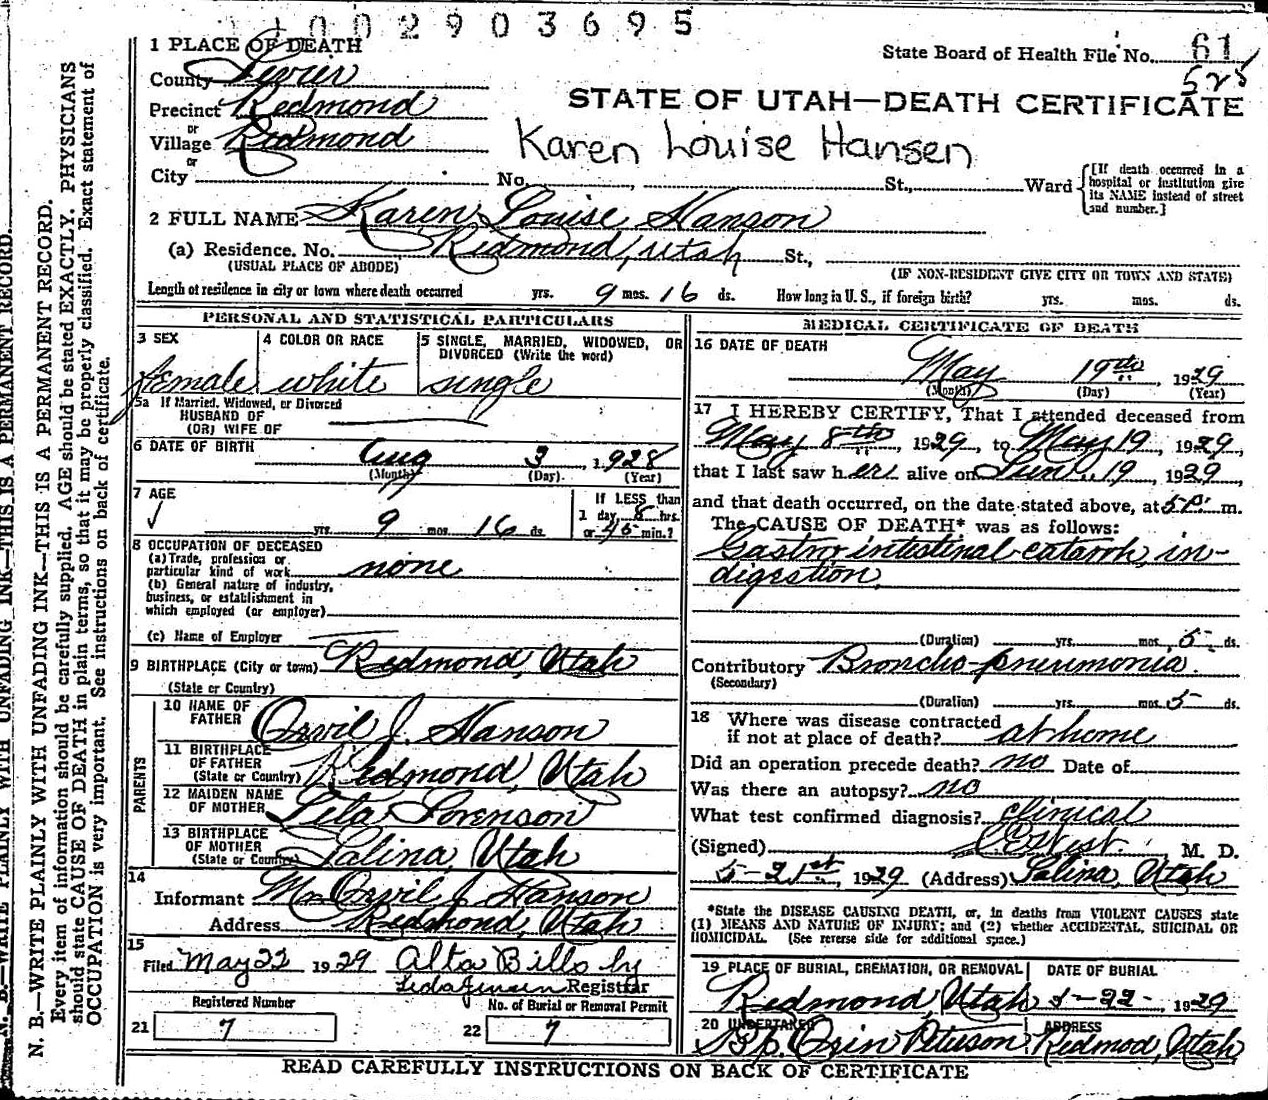 0 0 2 9 0 3 6 9 5
1 PLACE OF DEATH
State Board of Health File No. 61
County Sevier
525
Precinct Redmond
STATE OF UTAH—DEATH CERTIFICATE
or
Village Redmond
Karen Louise Hansen
or
City No. , St., Ward
[If death occurred in a hospital or institution give its NAME instead of street and number.]
2 FULL NAME Karen Louise Hanson
(a) Residence. No. Redmond, Utah St.,
(USUAL PLACE OF ABODE) (IF NON-RESIDENT GIVE CITY OR TOWN AND STATE)
Length of residence in city or town where death occurred yrs. 9 mos. 16 ds. How long in U. S., if foreign birth? yrs. mos. ds.
PERSONAL AND STATISTICAL PARTICULARS
3 SEX
female
4 COLOR OR RACE
white
5 SINGLE, MARRIED, WIDOWED, OR
DIVORCED (Write the word)
single
5a If Married, Widowed, or Divorced
HUSBAND OF
(OR) WIFE OF
6 DATE OF BIRTH Aug 3, 1928
(Month) (Day) (Year)
7 AGE
yrs. 9 mos. 16 ds.
If LESS than
1 day 8 hrs.
or 45 min.?
8 OCCUPATION OF DECEASED
(a) Trade, profession or
particular kind of work none
(b) General nature of industry,
business, or establishment in
which employed (or employer)
(c) Name of Employer
9 BIRTHPLACE (City or town) Redmond, Utah
(State or Country)
PARENTS
10 NAME OF
FATHER Orvil J. Hanson
11 BIRTHPLACE
OF FATHER
(State or Country) Redmond, Utah
12 MAIDEN NAME
OF MOTHER Lila Sorenson
13 BIRTHPLACE
OF MOTHER
(State or Country) Salina, Utah
14
Informant Mr Orvil J. Hanson
Address Redmond, Utah
15
Filed May 22 1929 Alta Bills by
Leda Jensen Registrar
Registered Number
21 7
No. of Burial or Removal Permit
22 7
MEDICAL CERTIFICATE OF DEATH
16 DATE OF DEATH
May 19th, 1929
(Month) (Day) (Year)
17 I HEREBY CERTIFY, That I attended deceased from
May 8th, 1929, to May 19, 1929,
that I last saw her alive on Sun. 19, 1929
and that death occurred, on the date stated above, at 5 P. m.
The CAUSE OF DEATH* was as follows:
Gastro intestinal catarrh, in-
digestion,
(Duration) yrs. mos. 5 ds.
Contributory Broncho-pneumonia.
(Secondary)
(Duration) yrs. mos. 5 ds.
18 Where was disease contracted
if not at place of death? at home
Did an operation precede death? no Date of
Was there an autopsy? no
What test confirmed diagnosis? clinical
(Signed) C E West. M. D.
5-21st, 1929 (Address) Salina, Utah
*State the DISEASE CAUSING DEATH, or, in deaths from VIOLENT CAUSES state
(1) MEANS AND NATURE OF INJURY; and (2) whether ACCIDENTAL, SUICIDAL OR
HOMICIDAL. (See reverse side for additional space.)
19 PLACE OF BURIAL, CREMATION, OR REMOVAL
Redmond, Utah
DATE OF BURIAL
5-22-1929
20 UNDERTAKER
Orin Peterson
ADDRESS
Redmod, Utah
READ CAREFULLY INSTRUCTIONS ON BACK OF CERTIFICATE
N. B.—WRITE PLAINLY WITH UNFADING INK—THIS IS A PERMANENT RECORD.
N. B.—WRITE PLAINLY WITH UNFADING INK—THIS IS A PERMANENT RECORD.
Every item of information should be carefully supplied. AGE should be stated EXACTLY. PHYSICIANS
should state CAUSE OF DEATH in plain terms, so that it may be properly classified. Exact statement of
OCCUPATION is very important. See instructions on back of certificate.